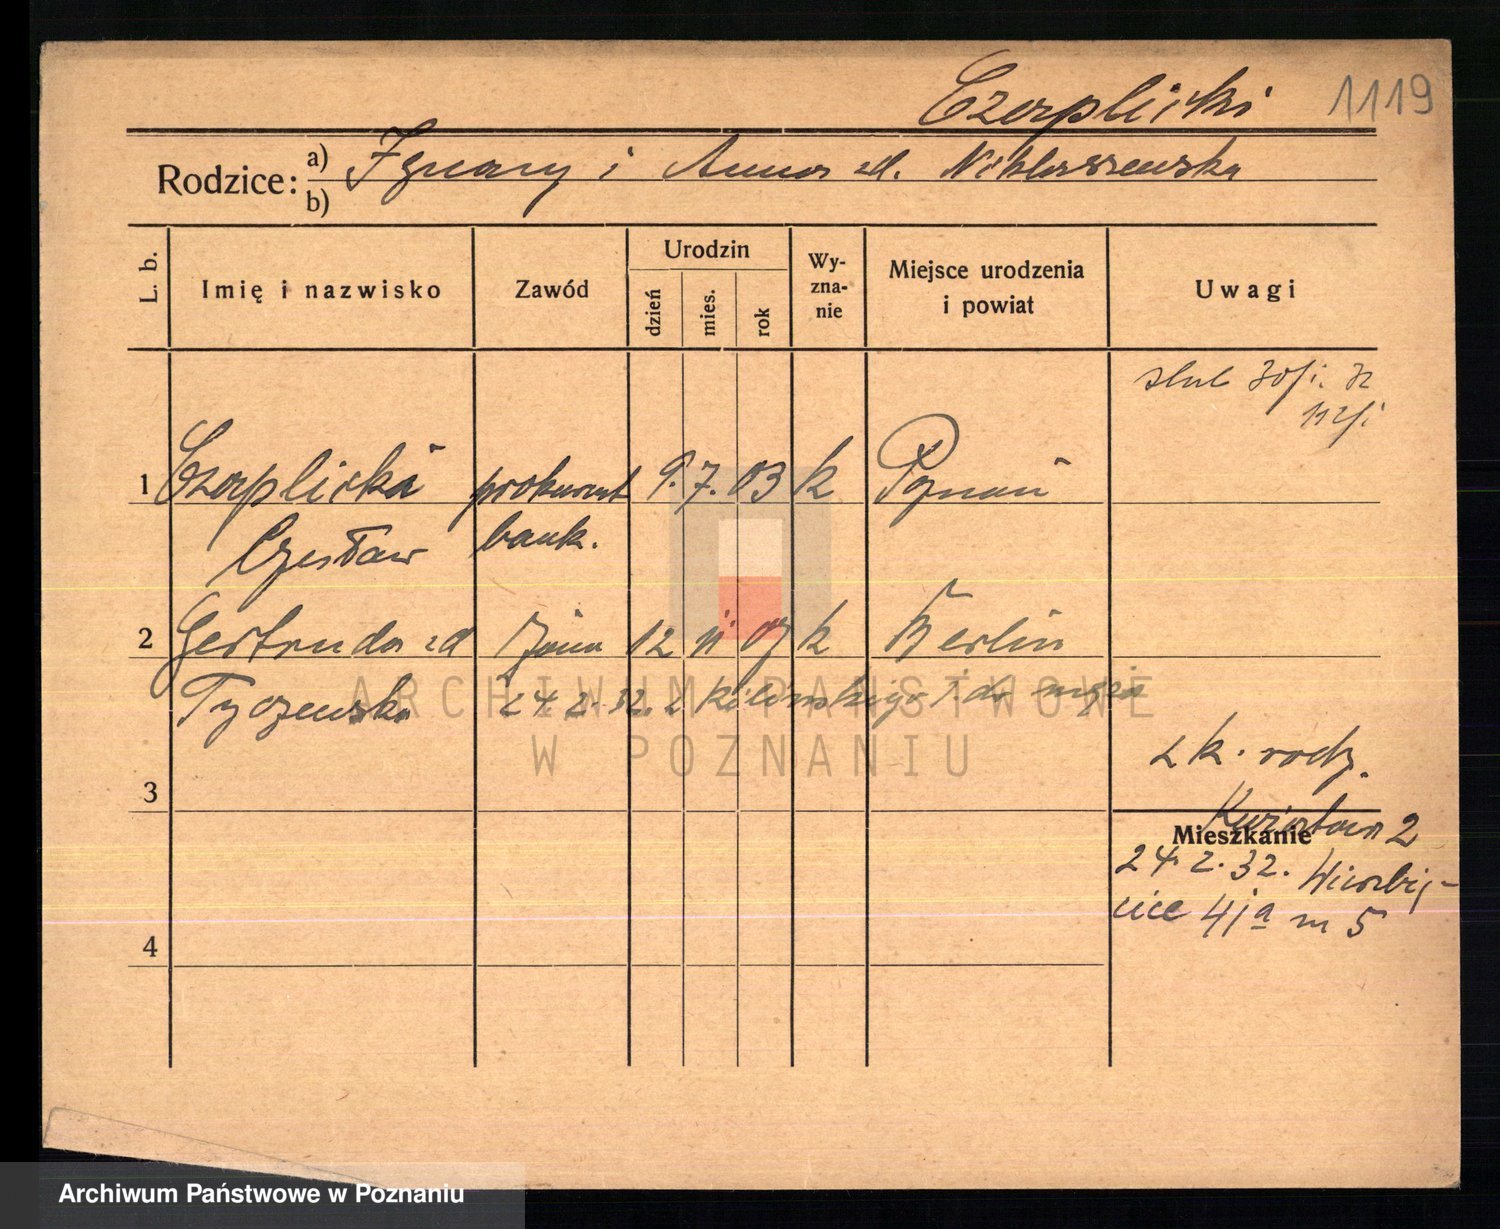 Czaplicki 1119
Rodzice: a) Ignacy i Anna zd. Niklaszewska
b)
L. b. Imię i nazwisko Zawód Urodzin dzień mies. rok Wyznanie Miejsce urodzenia i powiat Uwagi
ślub 30/1. 32
1 Czaplicki prokurent 9. 7. 03 k Poznań
Czesław bank.
2 Gertruda zd żona 12 11 07 k Berlin
Tyczewska 24. 2. 32. z Kilińskiego 7. do męża
z k. rodz.
3
Mieszkanie
24. 2. 32. Wierzbię-
cice 41a m 5
4
ARCHIWUM PAŃSTWOWE
W POZNANIU
Archiwum Państwowe w Poznaniu